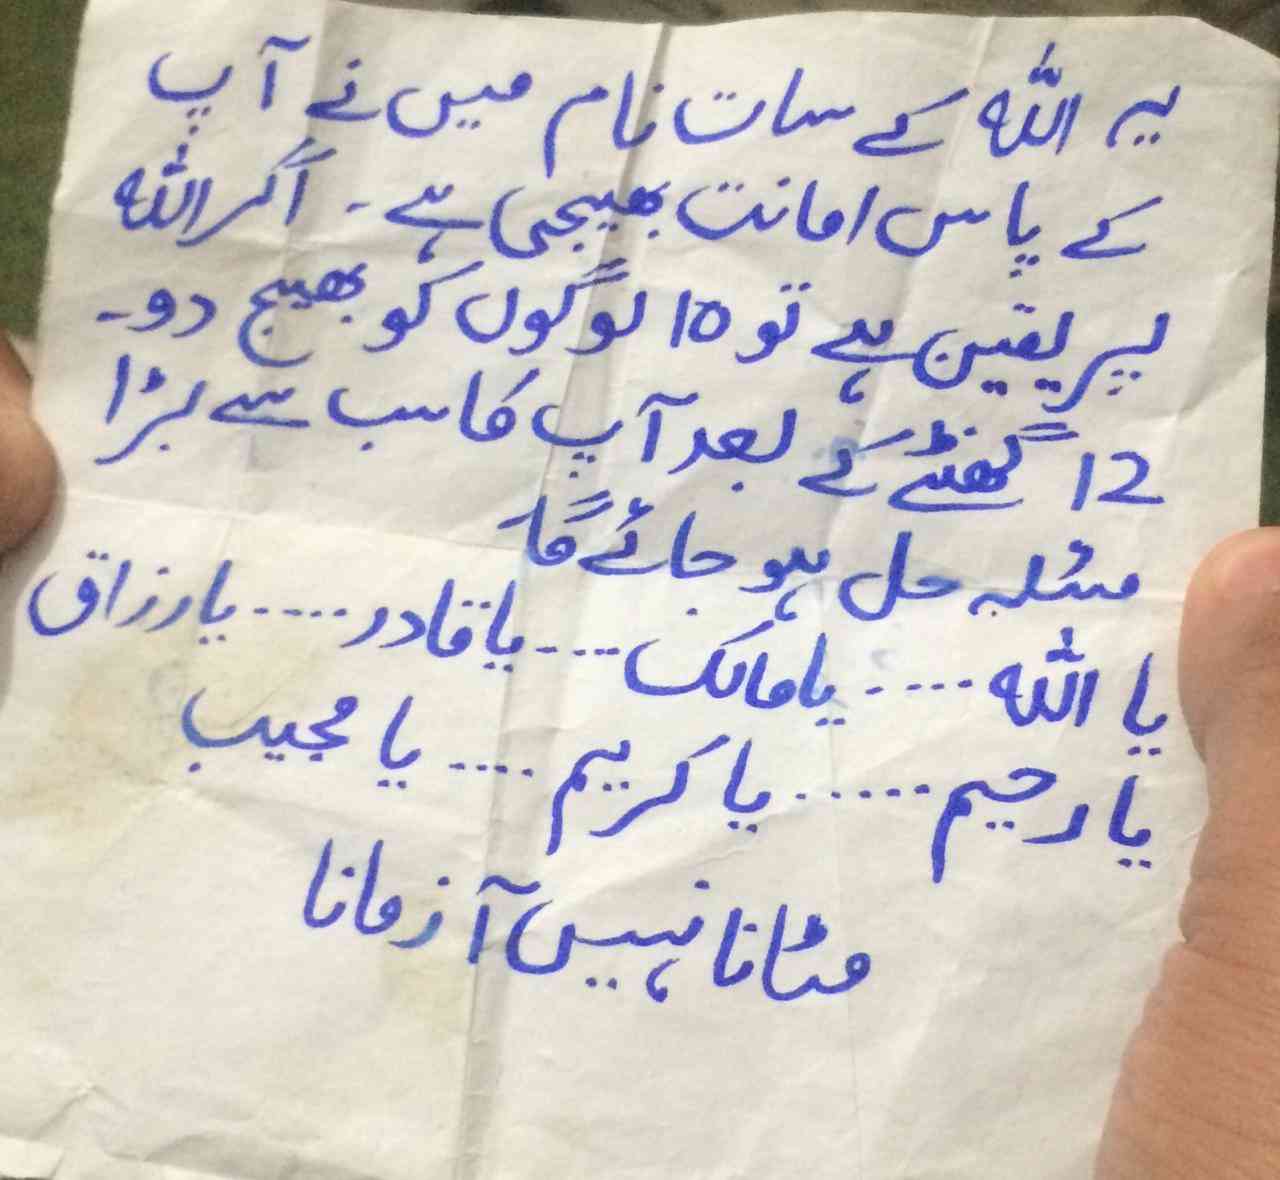 یہ اللہ کے سات نام میں نے آپ
کے پاس امانت بھیجی ہے ۔ اگر اللہ
پر یقین ہے تو 10 لوگوں کو بھیج دو۔
12 گھنٹے کے بعد آپ کا سب سے بڑا
مسئلہ حل ہو جائے گا
یا اللہ .... یا مالک .... یا قادر .... یا رزاق
یا رحیم ...... یا کریم .... یا مجیب
مٹانا نہیں آزمانا